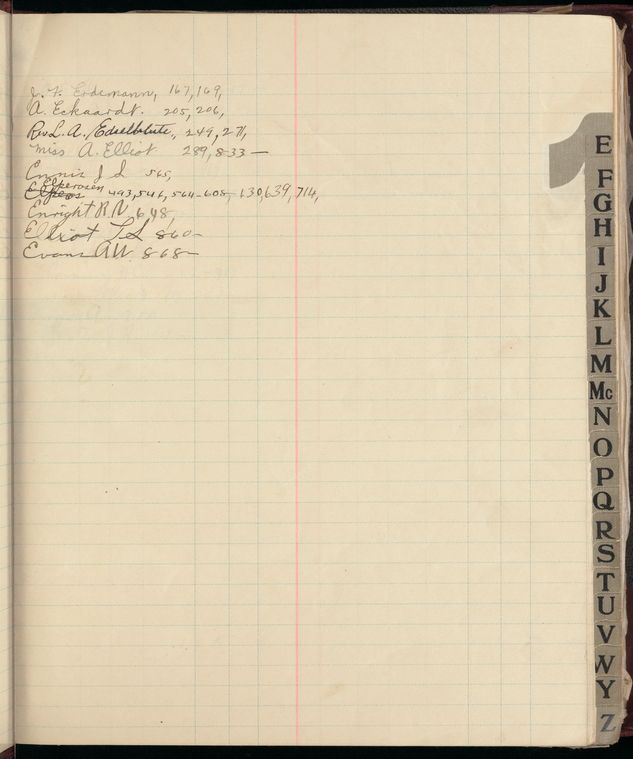 J. F. Erdemann, 167, 169,
A. Eckaardt. 205, 206,
Rev L. A. Edselblute, 249, 271,
Miss A. Elliot 289, 833 —
Ennis J S 565,
Elperosen
493, 546, 564 - 608, 630, 639, 714,
Enright R N. 648,
Elliot T S 860 -
Evans AW. 868 -
E
F
G
H
I
J
K
L
M
Mc
N
O
P
Q
R
S
T
U
V
W
Y
Z